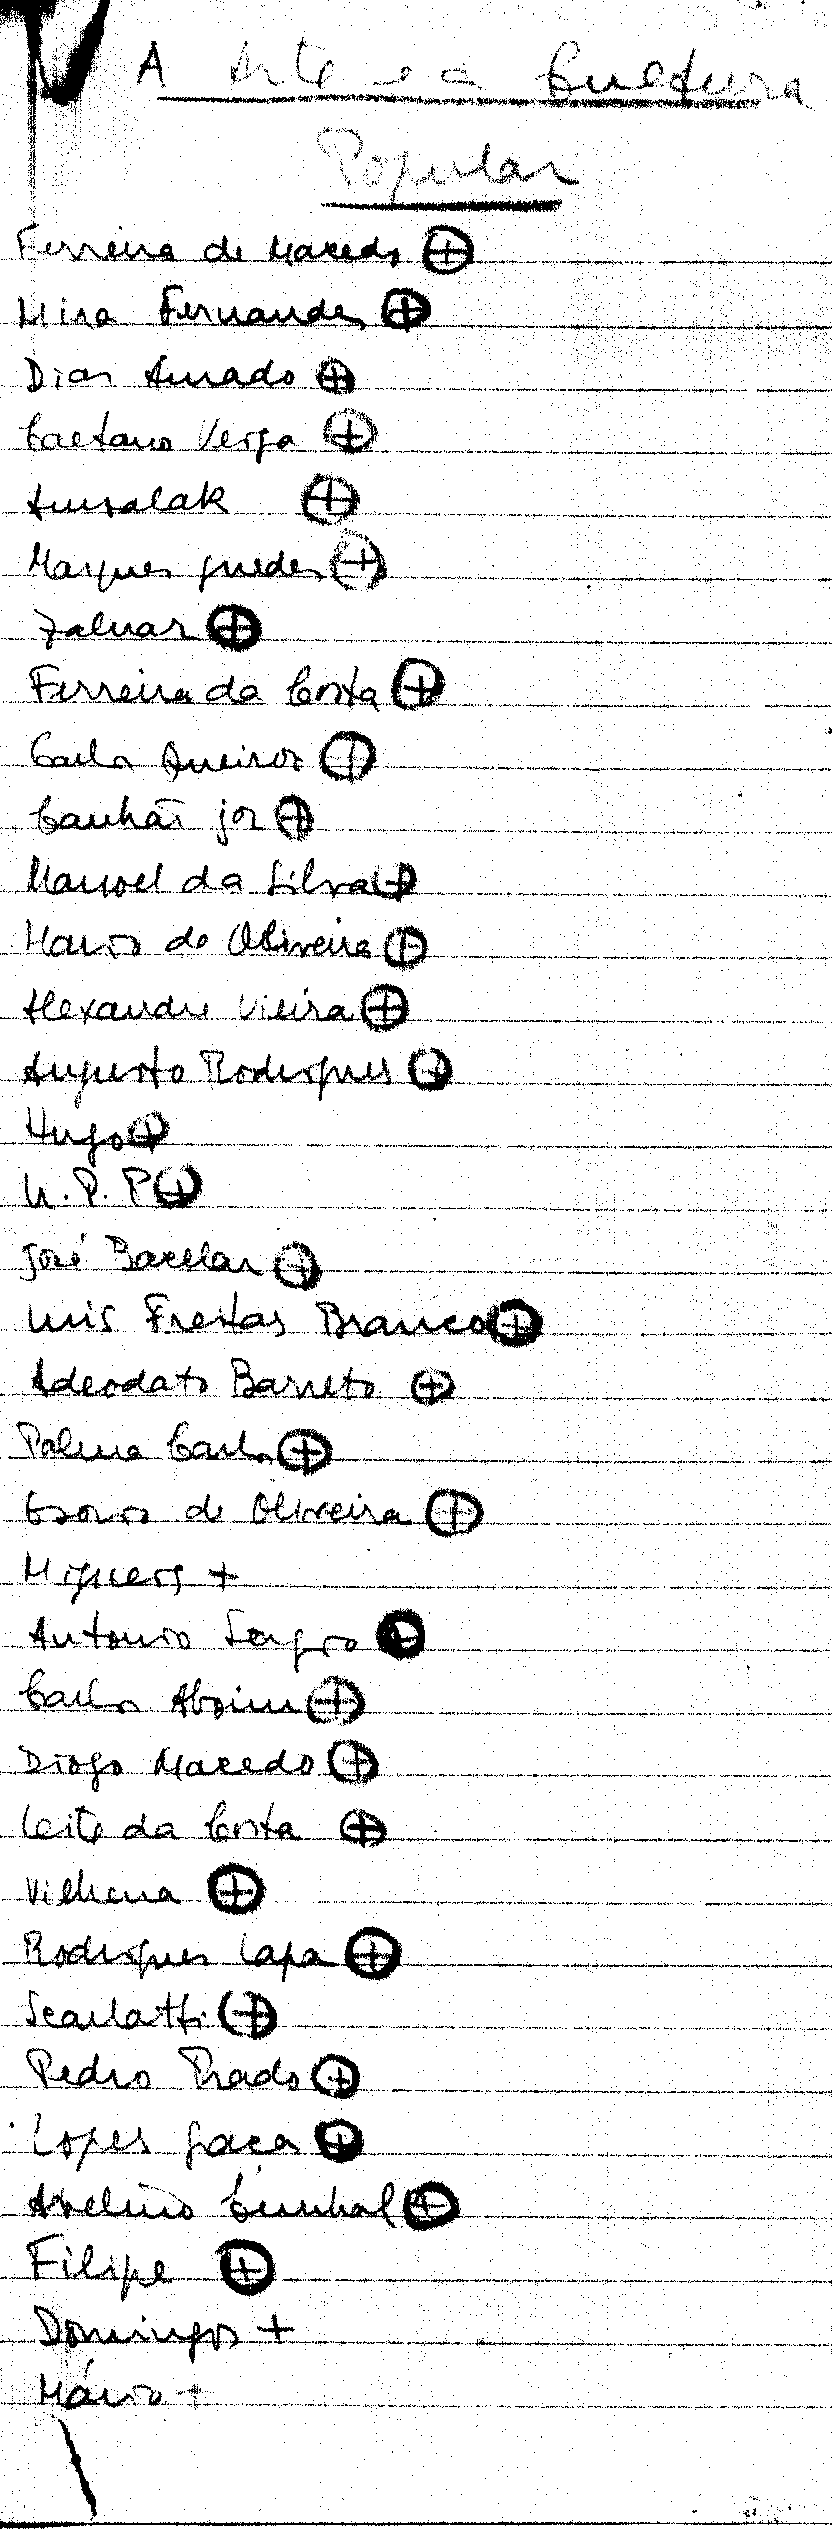 A Arte e a Cultura
Popular
Ferreira de Macedo ⊕
Mira Fernandes ⊕
Dias Amado ⊕
Caetano Verga ⊕
Amzalak ⊕
Marques Guedes ⊕
Zaluar ⊕
Ferreira da Costa ⊕
Carlos Queiroz ⊕
Canhão Jor ⊕
Manoel da Silva ⊕
Mario de Oliveira ⊕
Alexandre Vieira ⊕
Augusto Rodrigues ⊕
Hugo ⊕
U. P. P ⊕
José Bacelar ⊕
Luis Freitas Branco ⊕
Adeodato Barreto ⊕
Palma Carlos ⊕
de Oliveira ⊕
Migueis +
Antonio Sergio ⊕
Carlos Aboim ⊕
Diogo Macedo ⊕
Leite da Costa ⊕
Vilhena ⊕
Rodrigues Lapa ⊕
Scarlatti ⊕
Pedro Prado ⊕
Lopes Graça ⊕
Avelino Cunhal ⊕
Filipe ⊕
Domingos +
Mário +